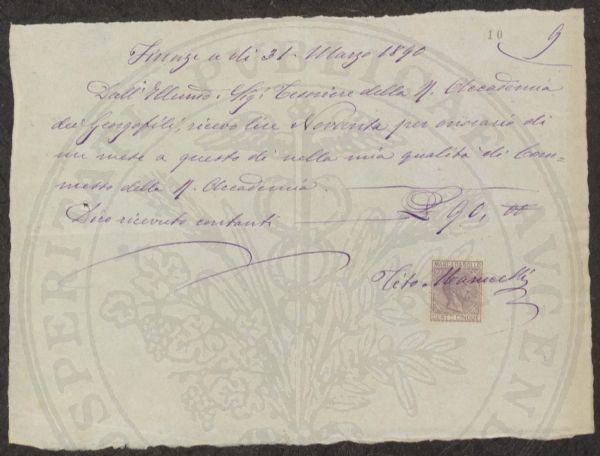 10 9
Firenze a di 31. Marzo 1890
Dall'Illmo. Sigr. Tesoriere della R. Accademia
dei Georgofili, ricevo lire Novanta per onorario di
un mese a questo dì nella mia qualità di Com=
messo della R. Accademia.
£ 90, 00
Dico ricevuto contanti
Tito
MARCA DA BOLLO
CENT. CINQUE
PUBLICAE
PROSPERITATI AUGENDAE